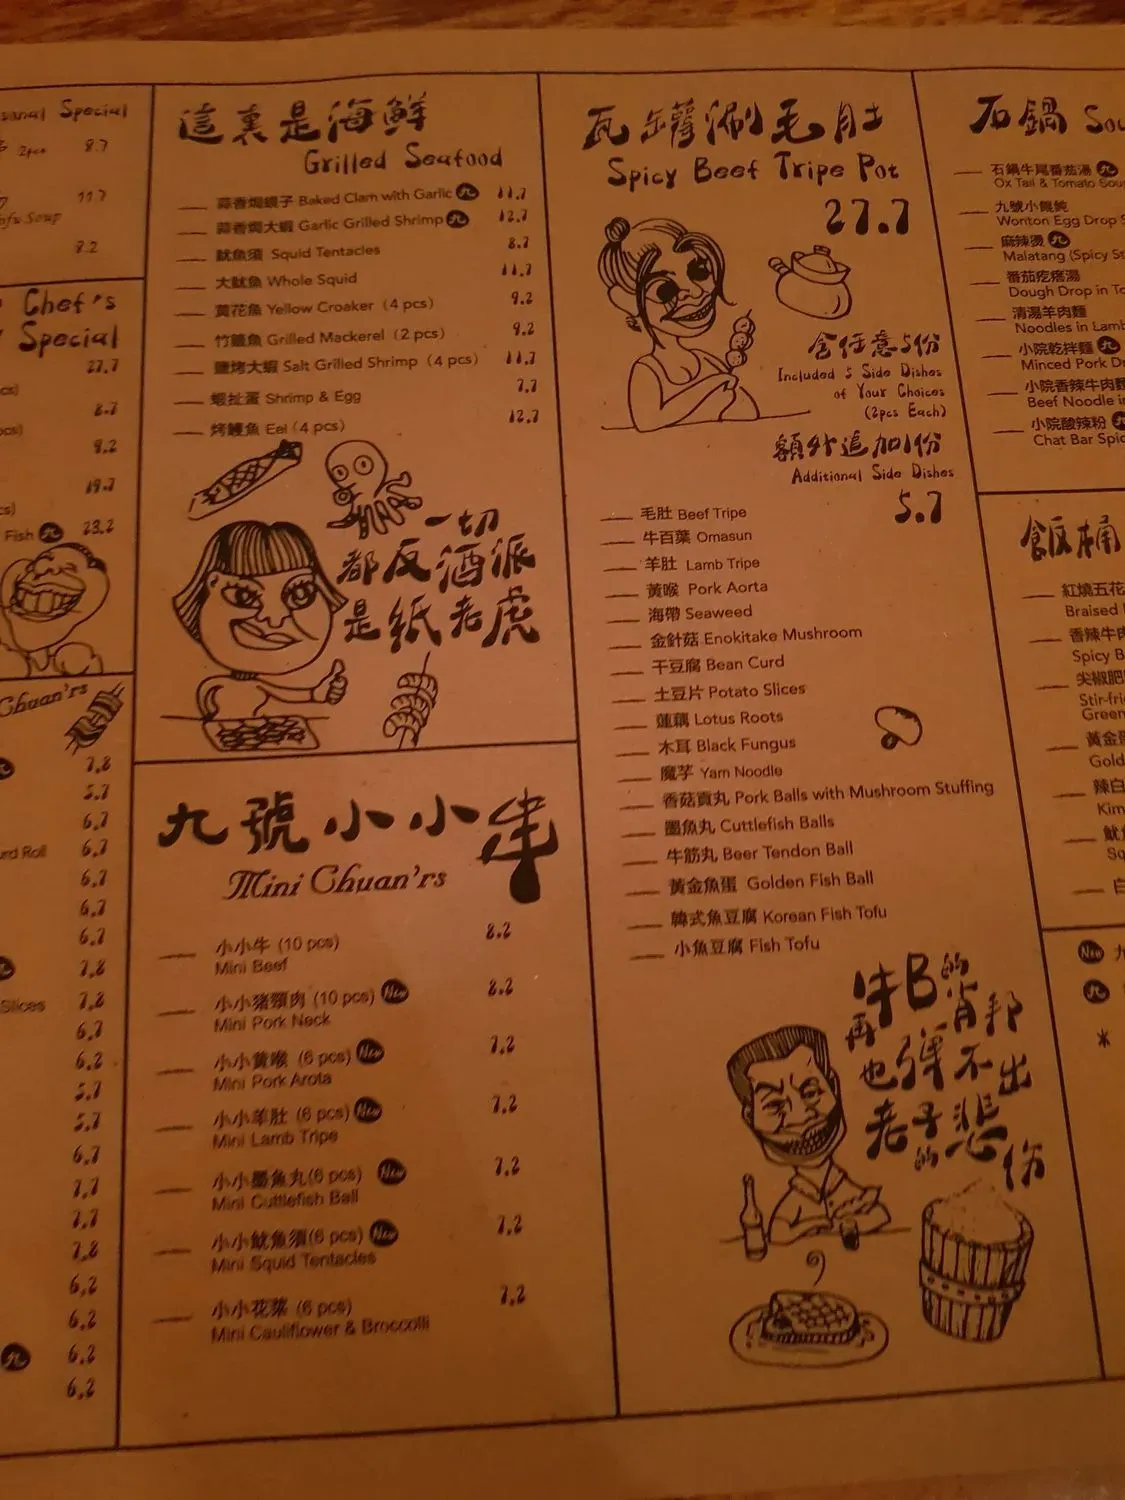 Special
2pcs 8.7
11.7
Soup
8.2
Chef's
Special
27.7
8.7
9.2
19.7
Fish 九 23.2
Chuan'rs
7.8
5.7
6.7
Roll 6.7
6.7
6.7
6.7
7.8
Slices 7.8
6.7
6.2
5.7
5.7
6.7
7.7
7.7
7.8
6.2
6.2
九 6.2
6.2
這裏是海鮮
Grilled Seafood
蒜香焗蜆子 Baked Clam with Garlic 九 11.7
蒜香焗大蝦 Garlic Grilled Shrimp 九 12.7
魷魚須 Squid Tentacles 8.7
大魷魚 Whole Squid 11.7
黃花魚 Yellow Croaker (4 pcs) 9.2
竹籤魚 Grilled Mackerel (2 pcs) 9.2
鹽烤大蝦 Salt Grilled Shrimp (4 pcs) 11.7
蝦扯蛋 Shrimp & Egg 7.7
烤鰻魚 Eel (4 pcs) 12.7
一切
都反酒派
是紙老虎
九號小小串
Mini Chuan'rs
小小牛 (10 pcs) 8.2
Mini Beef
小小猪頸肉 (10 pcs) New 8.2
Mini Pork Neck
小小黄喉 (6 pcs) New 7.2
Mini Pork Arota
小小羊肚 (6 pcs) New 7.2
Mini Lamb Tripe
小小墨魚丸(6 pcs) New 7.2
Mini Cuttlefish Ball
小小魷魚須(6 pcs) New 7.2
Mini Squid Tentacles
小小花菜 (6 pcs) 7.2
Mini Cauliflower & Broccolli
瓦罐涮毛肚
Spicy Beef Tripe Pot
27.7
含任意5份
Included 5 Side Dishes
of Your Choices
(2pcs Each)
額外追加1份
Additional Side Dishes
5.7
毛肚 Beef Tripe
牛百葉 Omasun
羊肚 Lamb Tripe
黃喉 Pork Aorta
海帶 Seaweed
金針菇 Enokitake Mushroom
干豆腐 Bean Curd
土豆片 Potato Slices
蓮藕 Lotus Roots
木耳 Black Fungus
魔芋 Yam Noodle
香菇貢丸 Pork Balls with Mushroom Stuffing
墨魚丸 Cuttlefish Balls
牛筋丸 Beer Tendon Ball
黃金魚蛋 Golden Fish Ball
韓式魚豆腐 Korean Fish Tofu
小魚豆腐 Fish Tofu
再牛B的肖邦
也彈不出
老子的悲傷
石鍋 Sou
石鍋牛尾番茄湯 九
Ox Tail & Tomato Soup
九號小餛飩
Wonton Egg Drop S
麻辣燙 九
Malatang (Spicy St
番茄疙瘩湯
Dough Drop in To
清湯羊肉麵
Noodles in Lamb
小院乾拌麵 九
Minced Pork Dr
小院香辣牛肉麵
Beef Noodle in
小院酸辣粉 九
Chat Bar Spic
飯桶
紅燒五花
Braised
香辣牛肉
Spicy B
尖椒肥
Stir-fri
Green
黃金蛋
Gold
辣白
Kim
魷魚
Sq
白
New 九
九
*